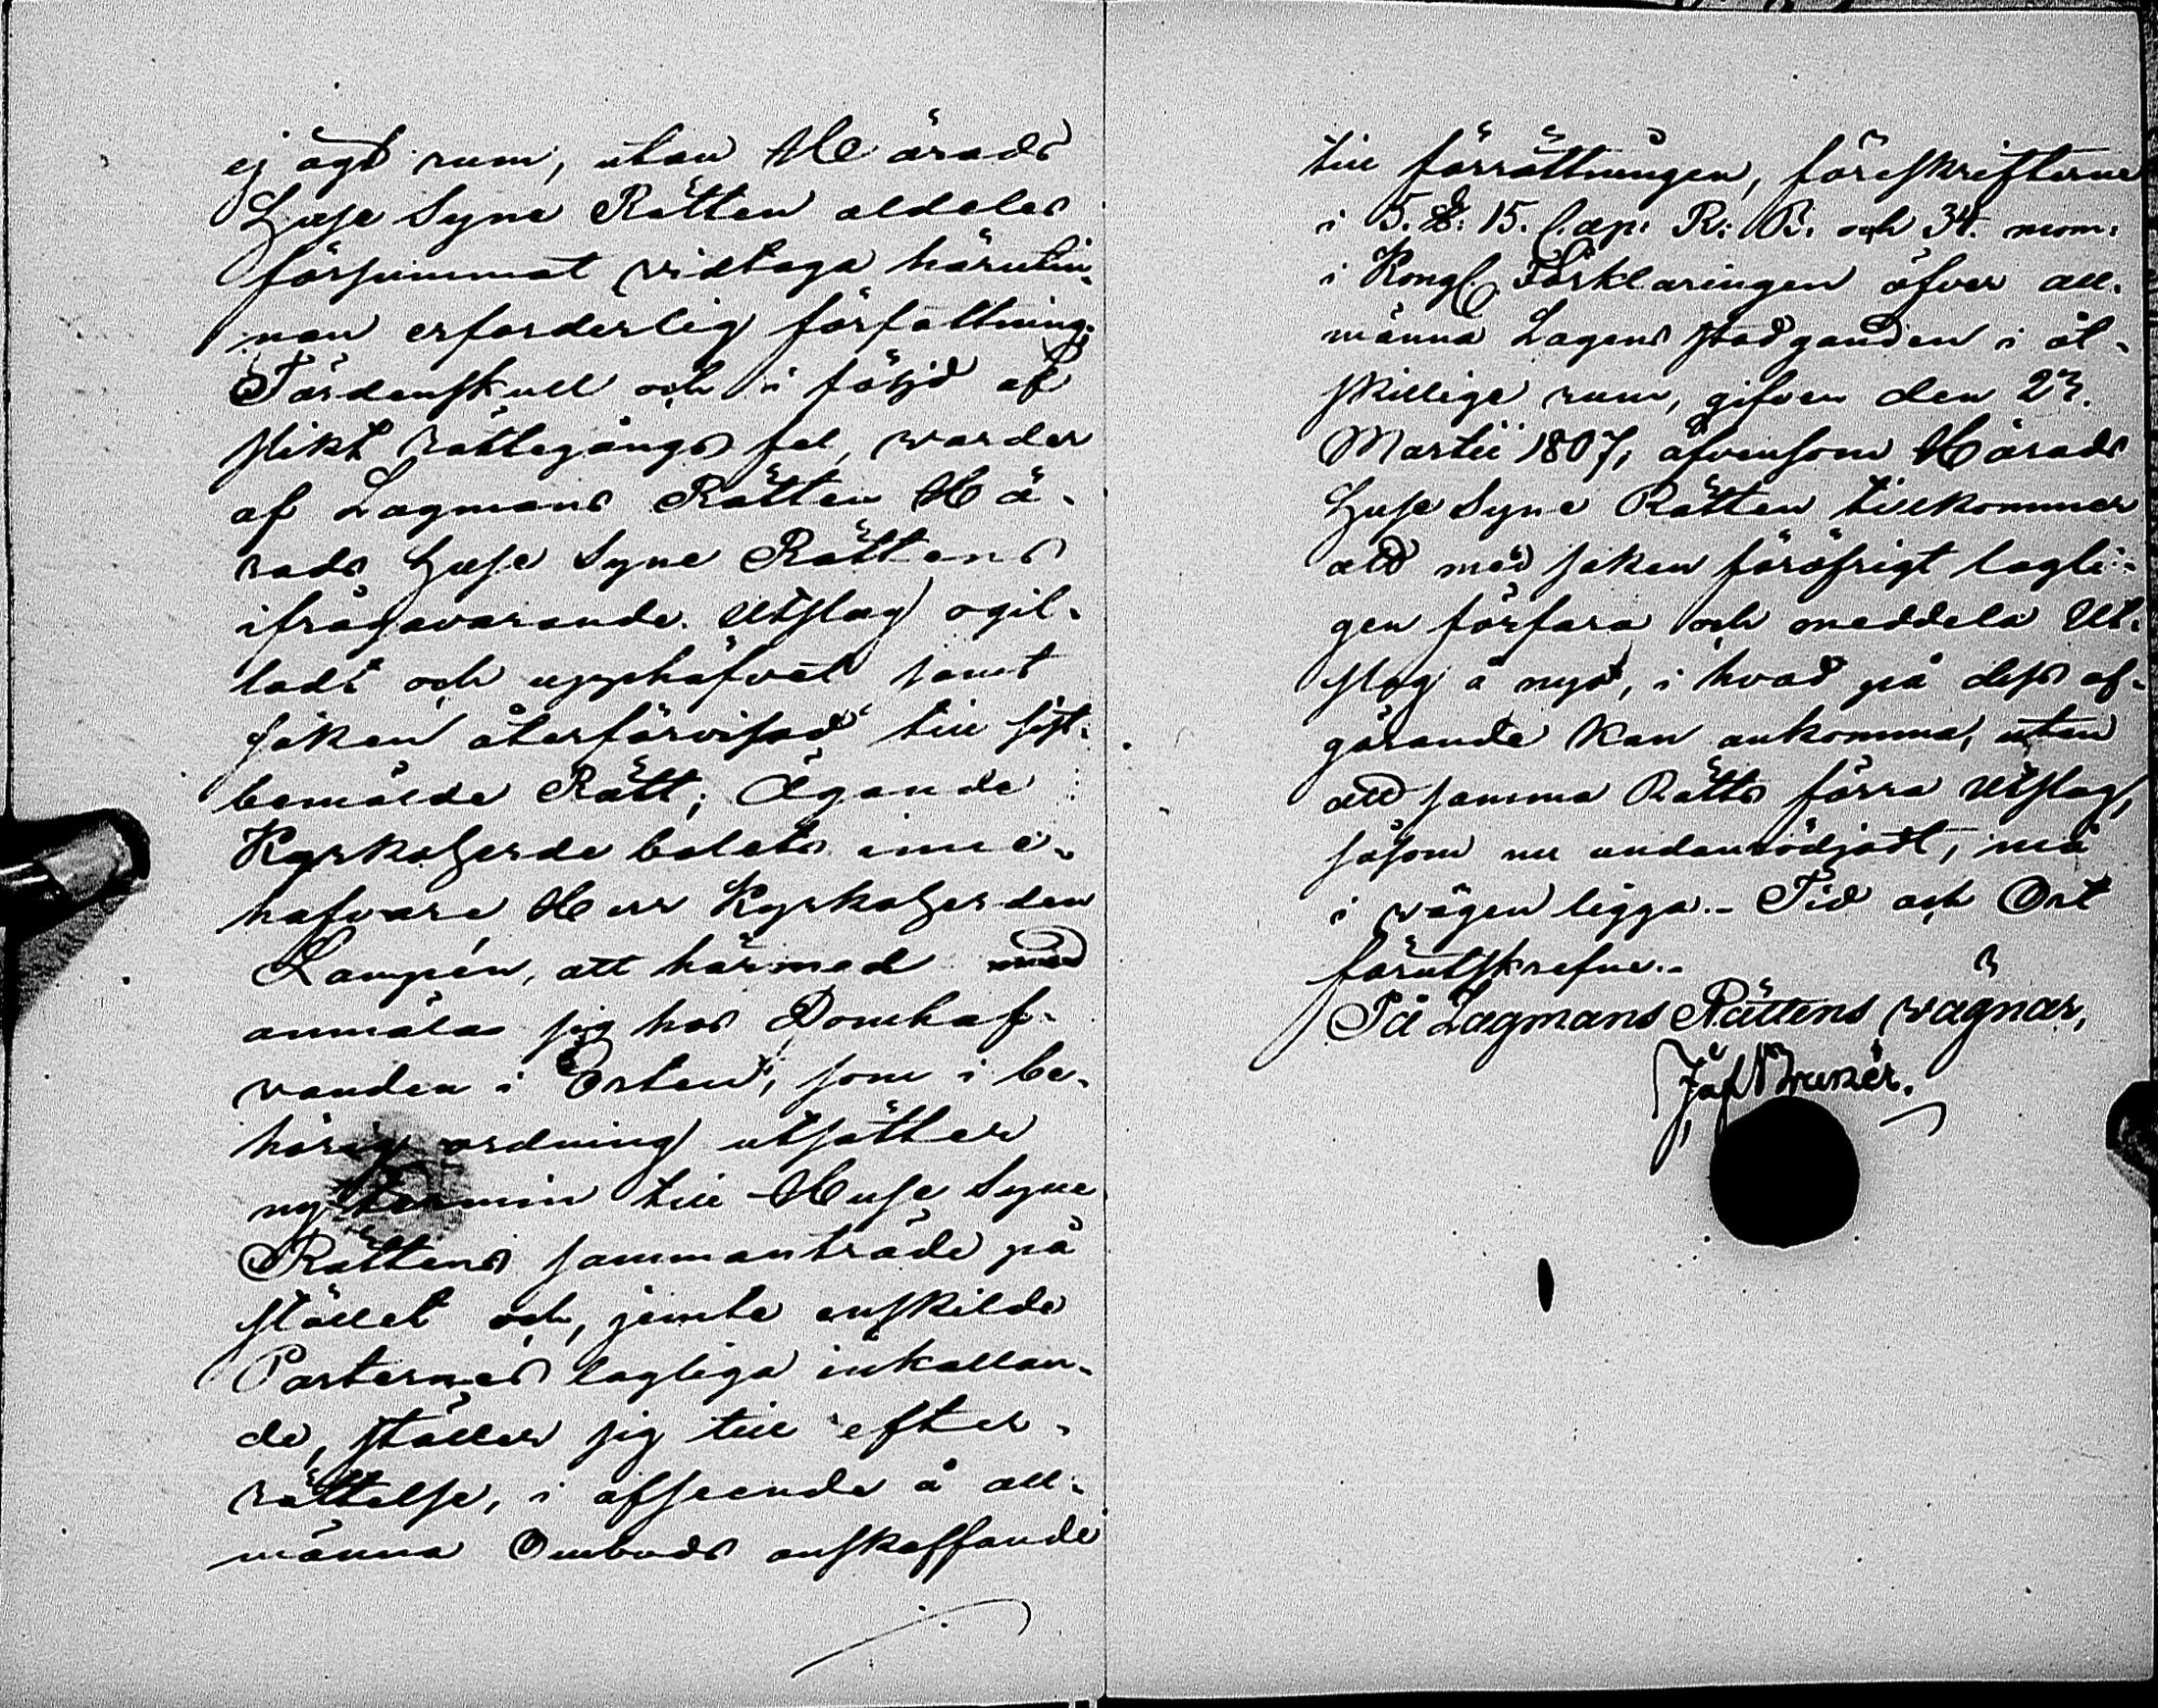 ej ägt rum, utan Härads
Huse Syne Rätten aldeles
försummat vidtaga härutin-
nan erforderlig författning;
Fördenskull och i följd af
slikt rättegångs fel, warder
af Lagmans Rätten Hä-
rads Huse Syne Rättens
ifrågavarande Utslag ogil-
ladt och upphäfvet samt
saken återförvisad till sist-
bemälde Rätt; Ägande
Kyrkoherde bolets inne-
hafvare Herr Kyrkoherden
Lampén, att härmed
anmäla sig hos Domhaf-
vanden i Orten, som i be-
hörig ordning utsätter
ny termin till Huse Syne
Rättens sammanträde på
stället och, jemte enskilde
Parternes lagliga inkallan-
de, ställer sig till efter-
rättelse, i afseende å all-
männa Ombuds anskaffande
till förrättningen, föreskrifterne
i 5. §: 15. Cap: R: B: och 34. mom:
i Kongl. Förklaringen öfver all-
männa Lagens stadganden i åt-
skillige rum, gifven den 23.
Martii 1807; äfvensom Härads
Huse Syne Rätten tillkommer
att med saken föröfrigt lagli-
gen förfara och meddela Ut-
slag å nyo, i hvad på dess af-
görande kan ankomma, utan
att samma Rätts förra Utslag,
såsom nu undanrödjadt, må
i vägen ligga.- Tid och Ort
förutskrefne.-
På Lagmans Rättens vägnar,